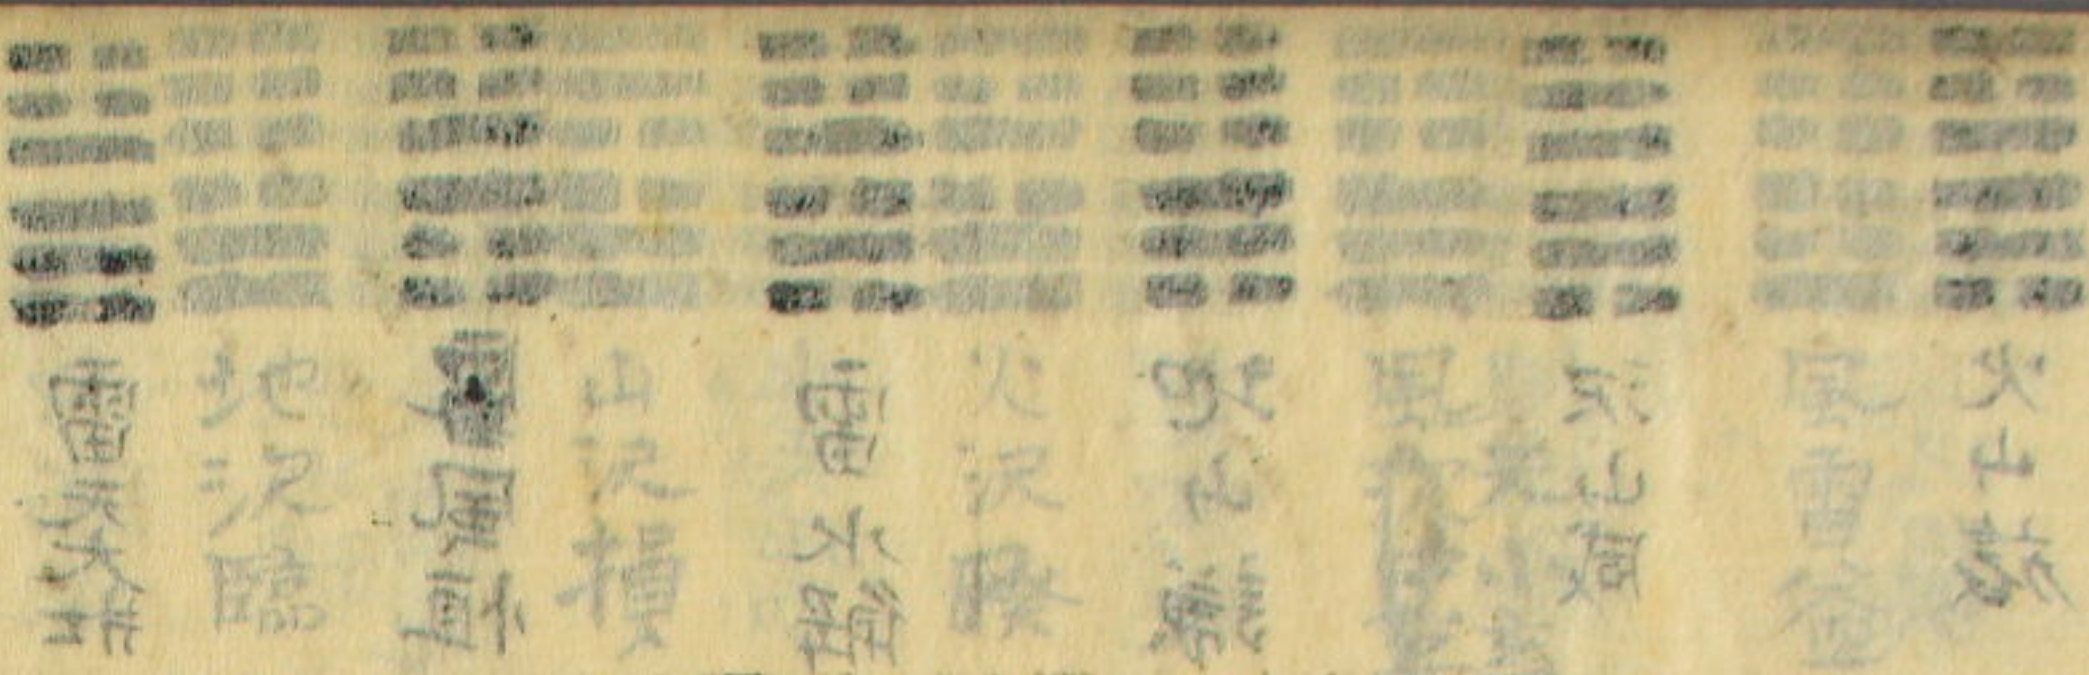 火山旅
風雷益
沢山咸
地山謙
火沢睽
雷水解
山沢損
雷風恒
地沢臨
雷天大壮